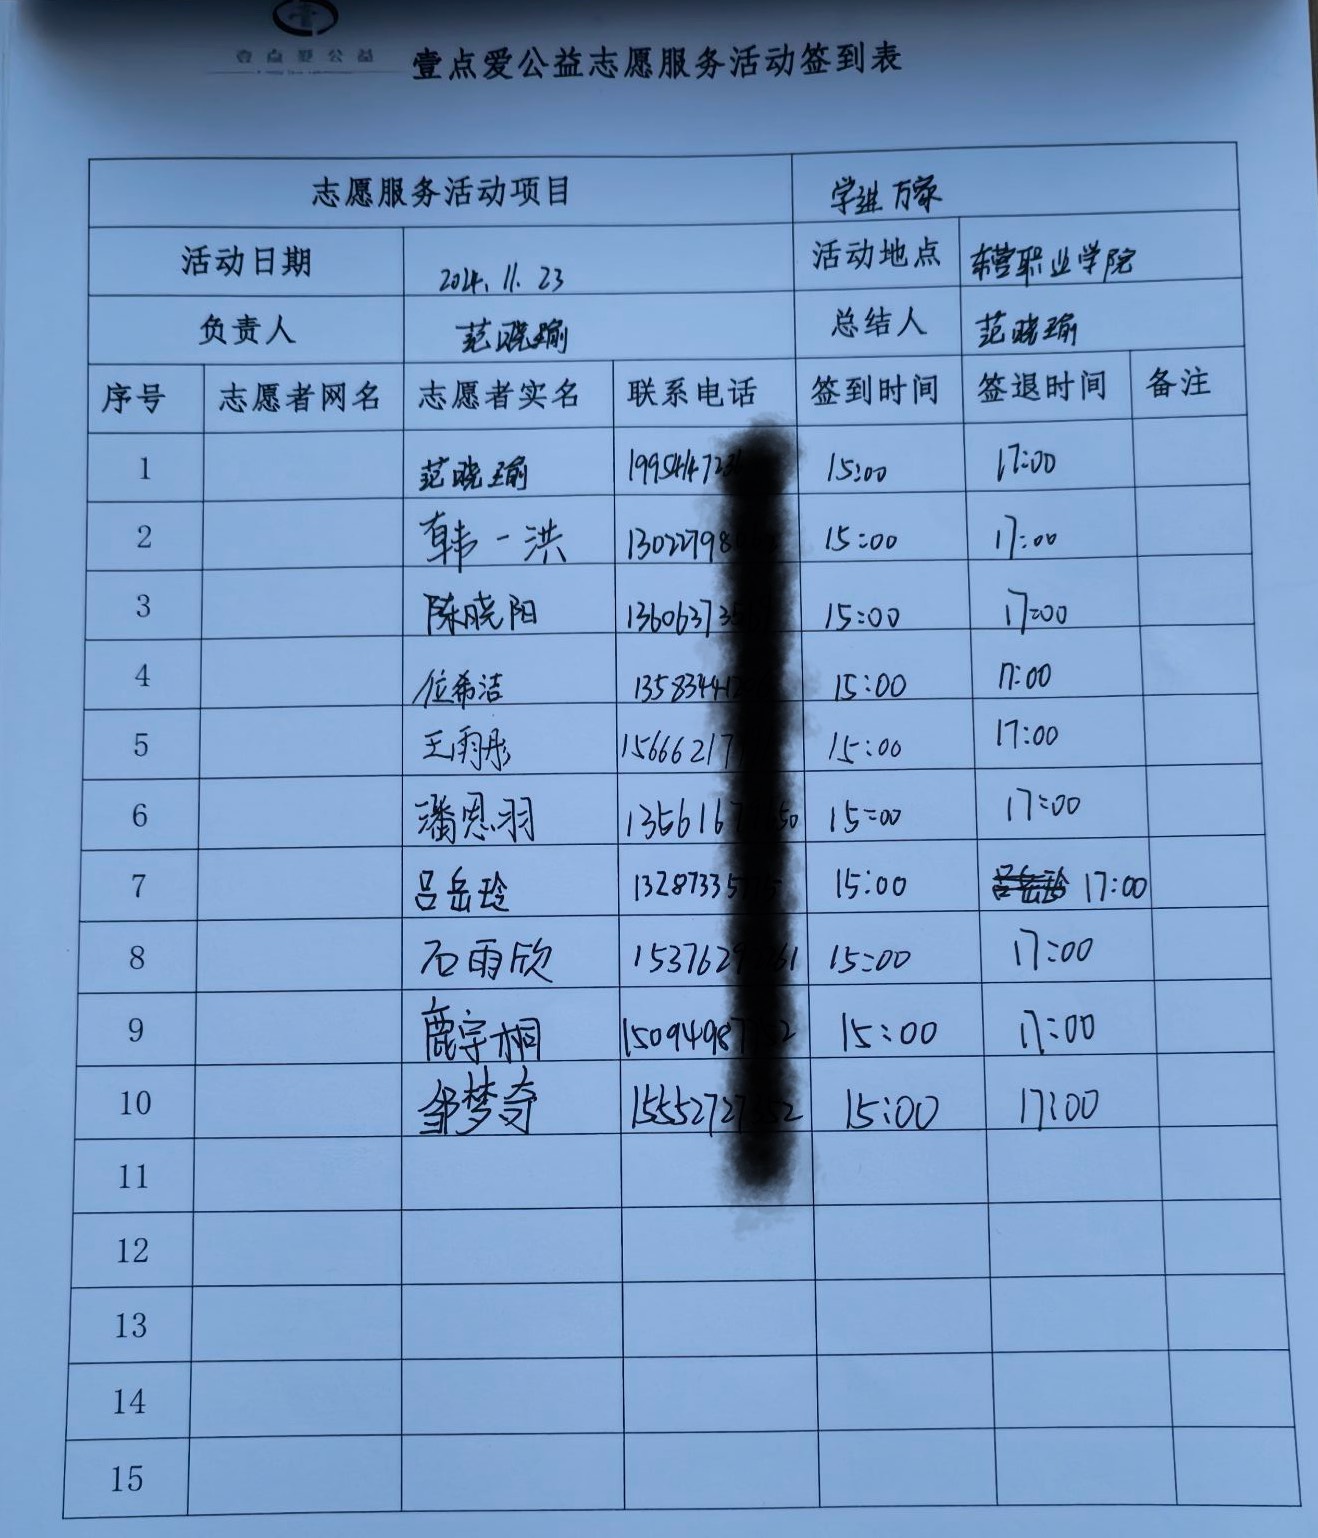 壹点爱公益
壹点爱公益志愿服务活动签到表
志愿服务活动项目 学进万家
活动日期 2024.11.23 活动地点 东营职业学院
负责人 范晓瑜 总结人 范晓瑜
序号 志愿者网名 志愿者实名 联系电话 签到时间 签退时间 备注
1 范晓瑜 15:00 17:00
2 韩一洪 15:00 17:00
3 陈晓阳 15:00 17:00
4 位希洁 15:00 17:00
5 王雨彤 15:00 17:00
6 潘恩羽 15:00 17:00
7 吕岳玲 15:00 17:00
8 石雨欣 15:00 17:00
9 鹿宇桐 15:00 17:00
10 邹梦奇 15:00 17:00
11
12
13
14
15